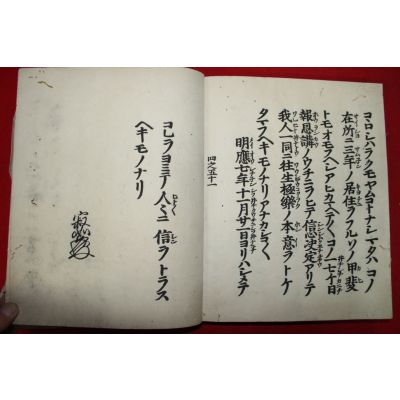 コヽロシハラクモヤムコトナシマタハコノ
在所ニ三年ノ居住ヲフルソノ甲斐
トモオモフヘシアヒカマヘテ〱コノ一七ケ日
報恩講ノウチニヲヒテ信心決定アリテ
我人一同ニ往生極樂ノ本意ヲトケ
タマフヘキモノナリアナカシコ〱
明應七年十一月廿一日ヨリハシメテ
四之五十一
コレヲヨミテ人々ニ信ヲトラス
ヘキモノナリ